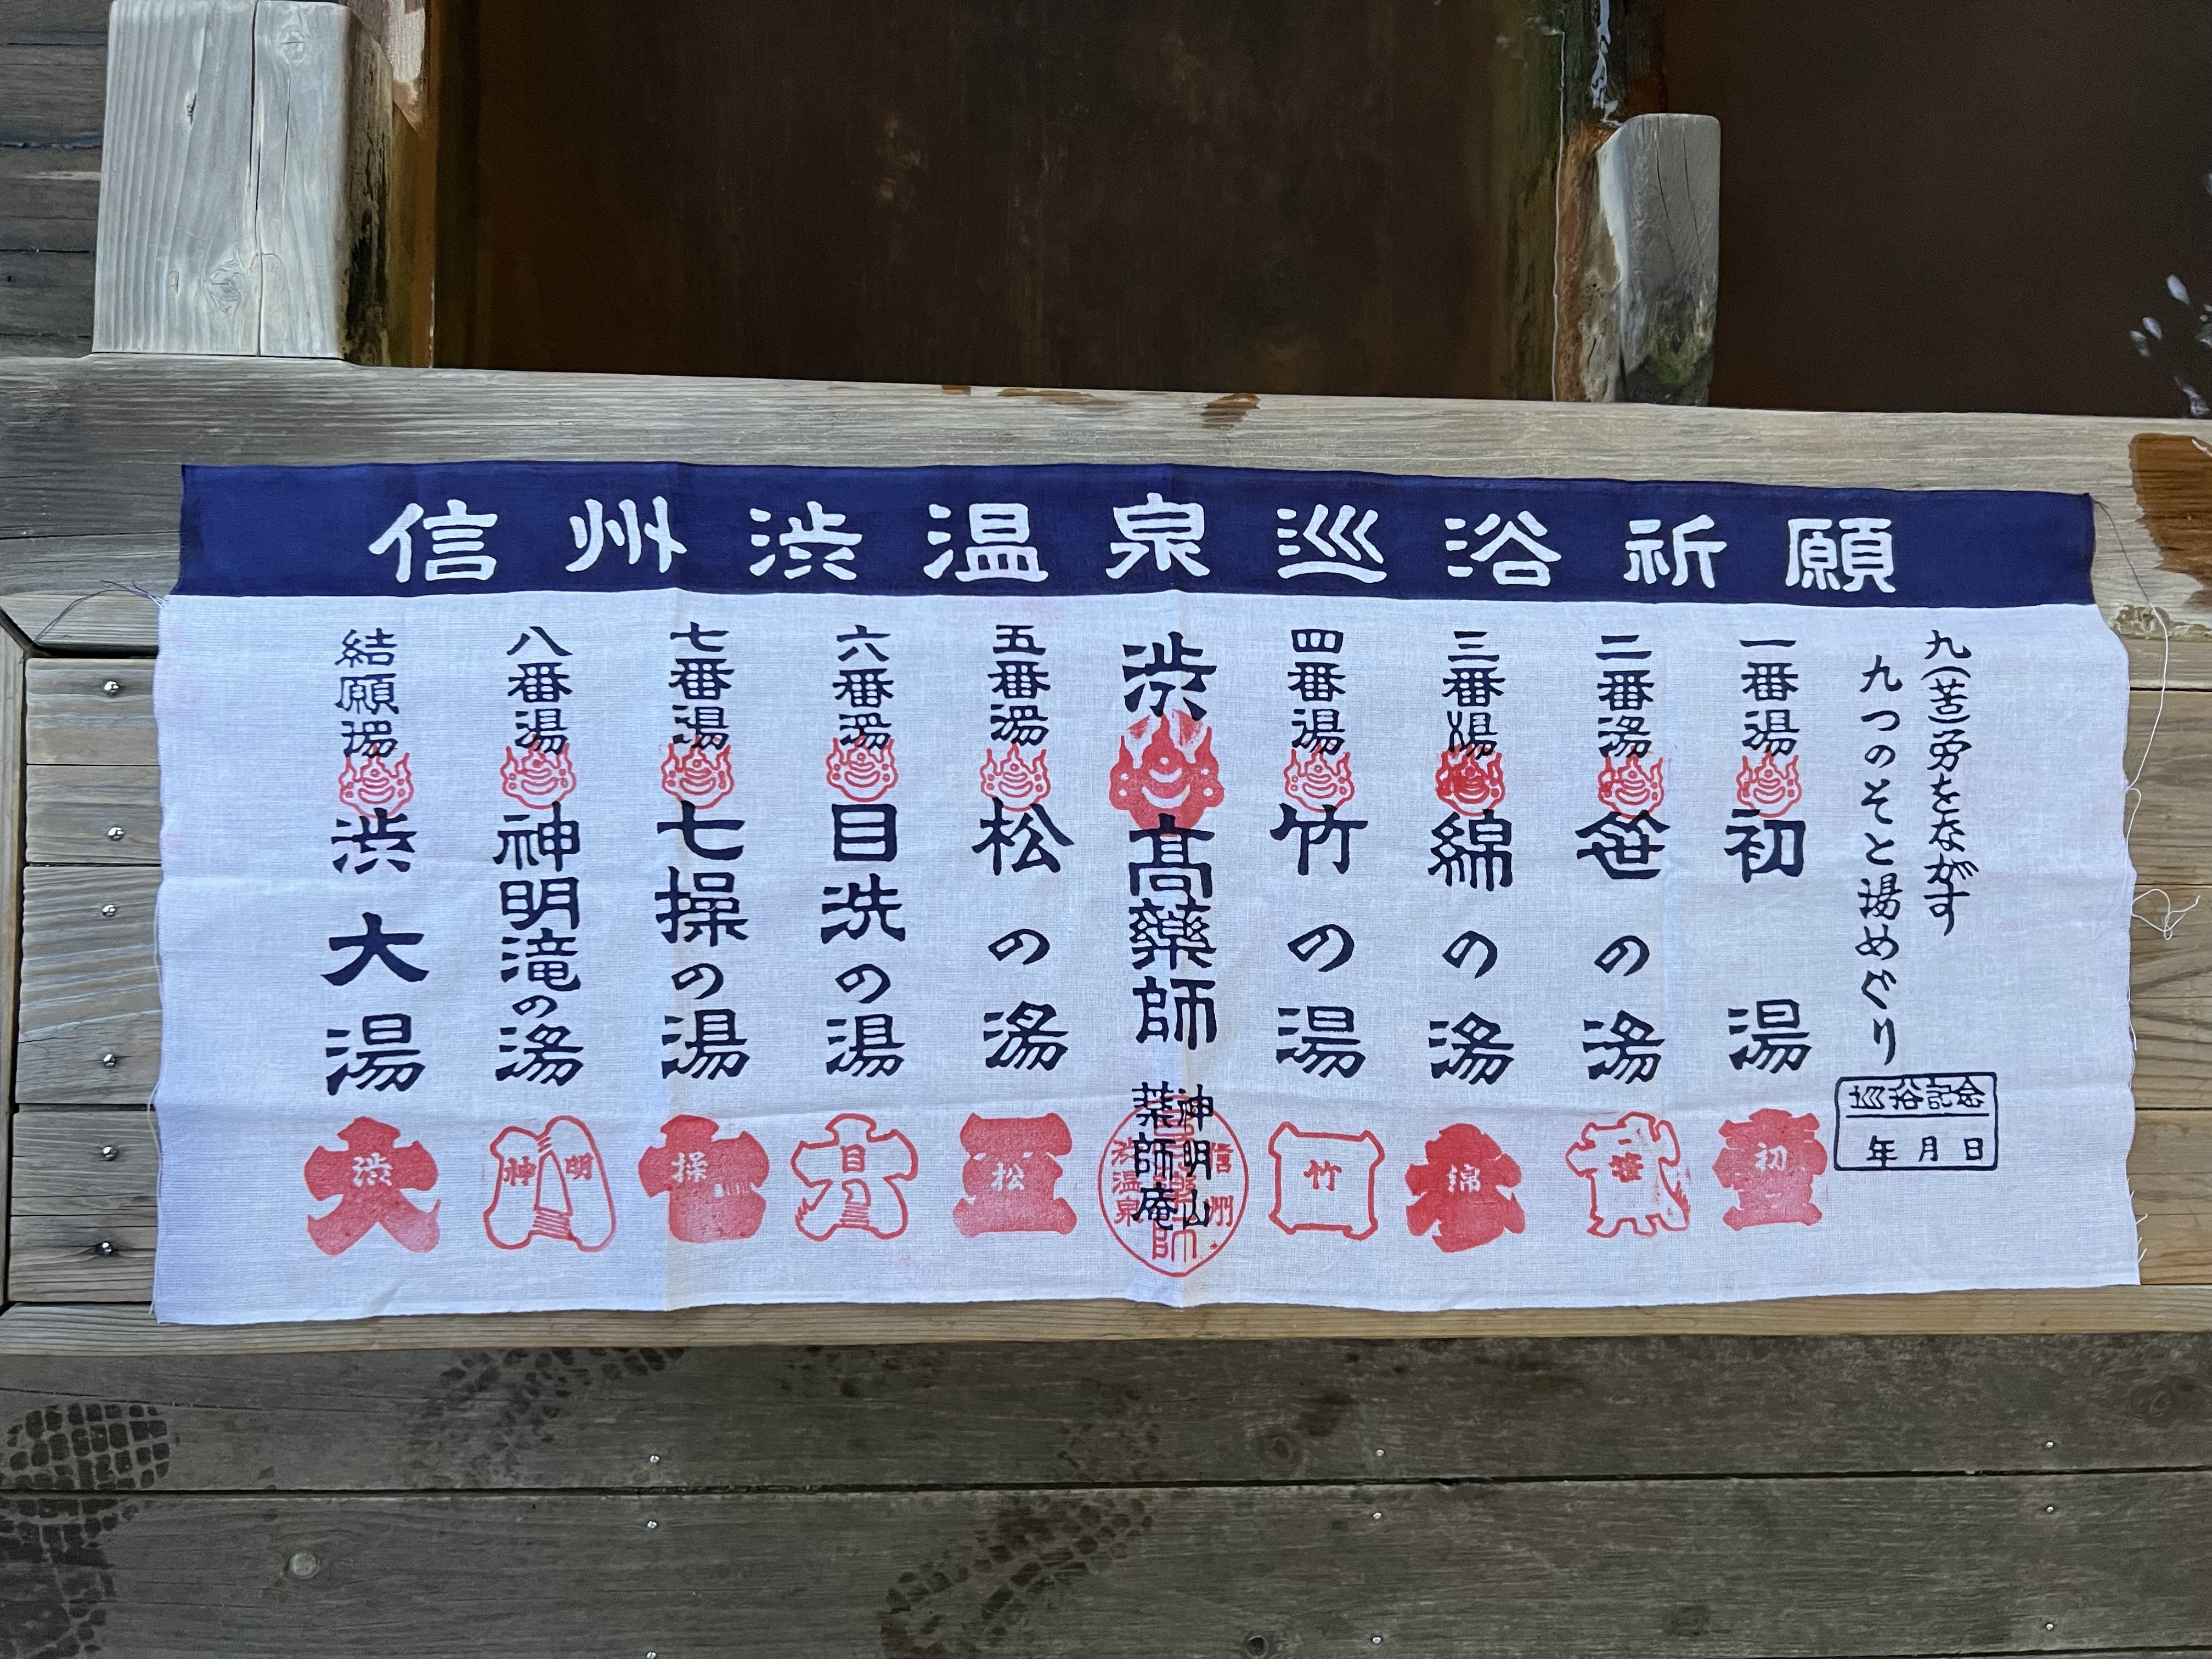 信州渋温泉巡浴祈願
九(苦)労をながす
九つのそと湯めぐり
巡浴記念
年月日
一番湯
初湯
初
二番湯
笹の湯
笹
三番湯
綿の湯
綿
四番湯
竹の湯
竹
渋高薬師
神明山
薬師庵
信州
渋温泉
五番湯
松の湯
松
六番湯
目洗の湯
目
七番湯
七操の湯
操
八番湯
神明滝の湯
神明
結願湯
渋大湯
渋